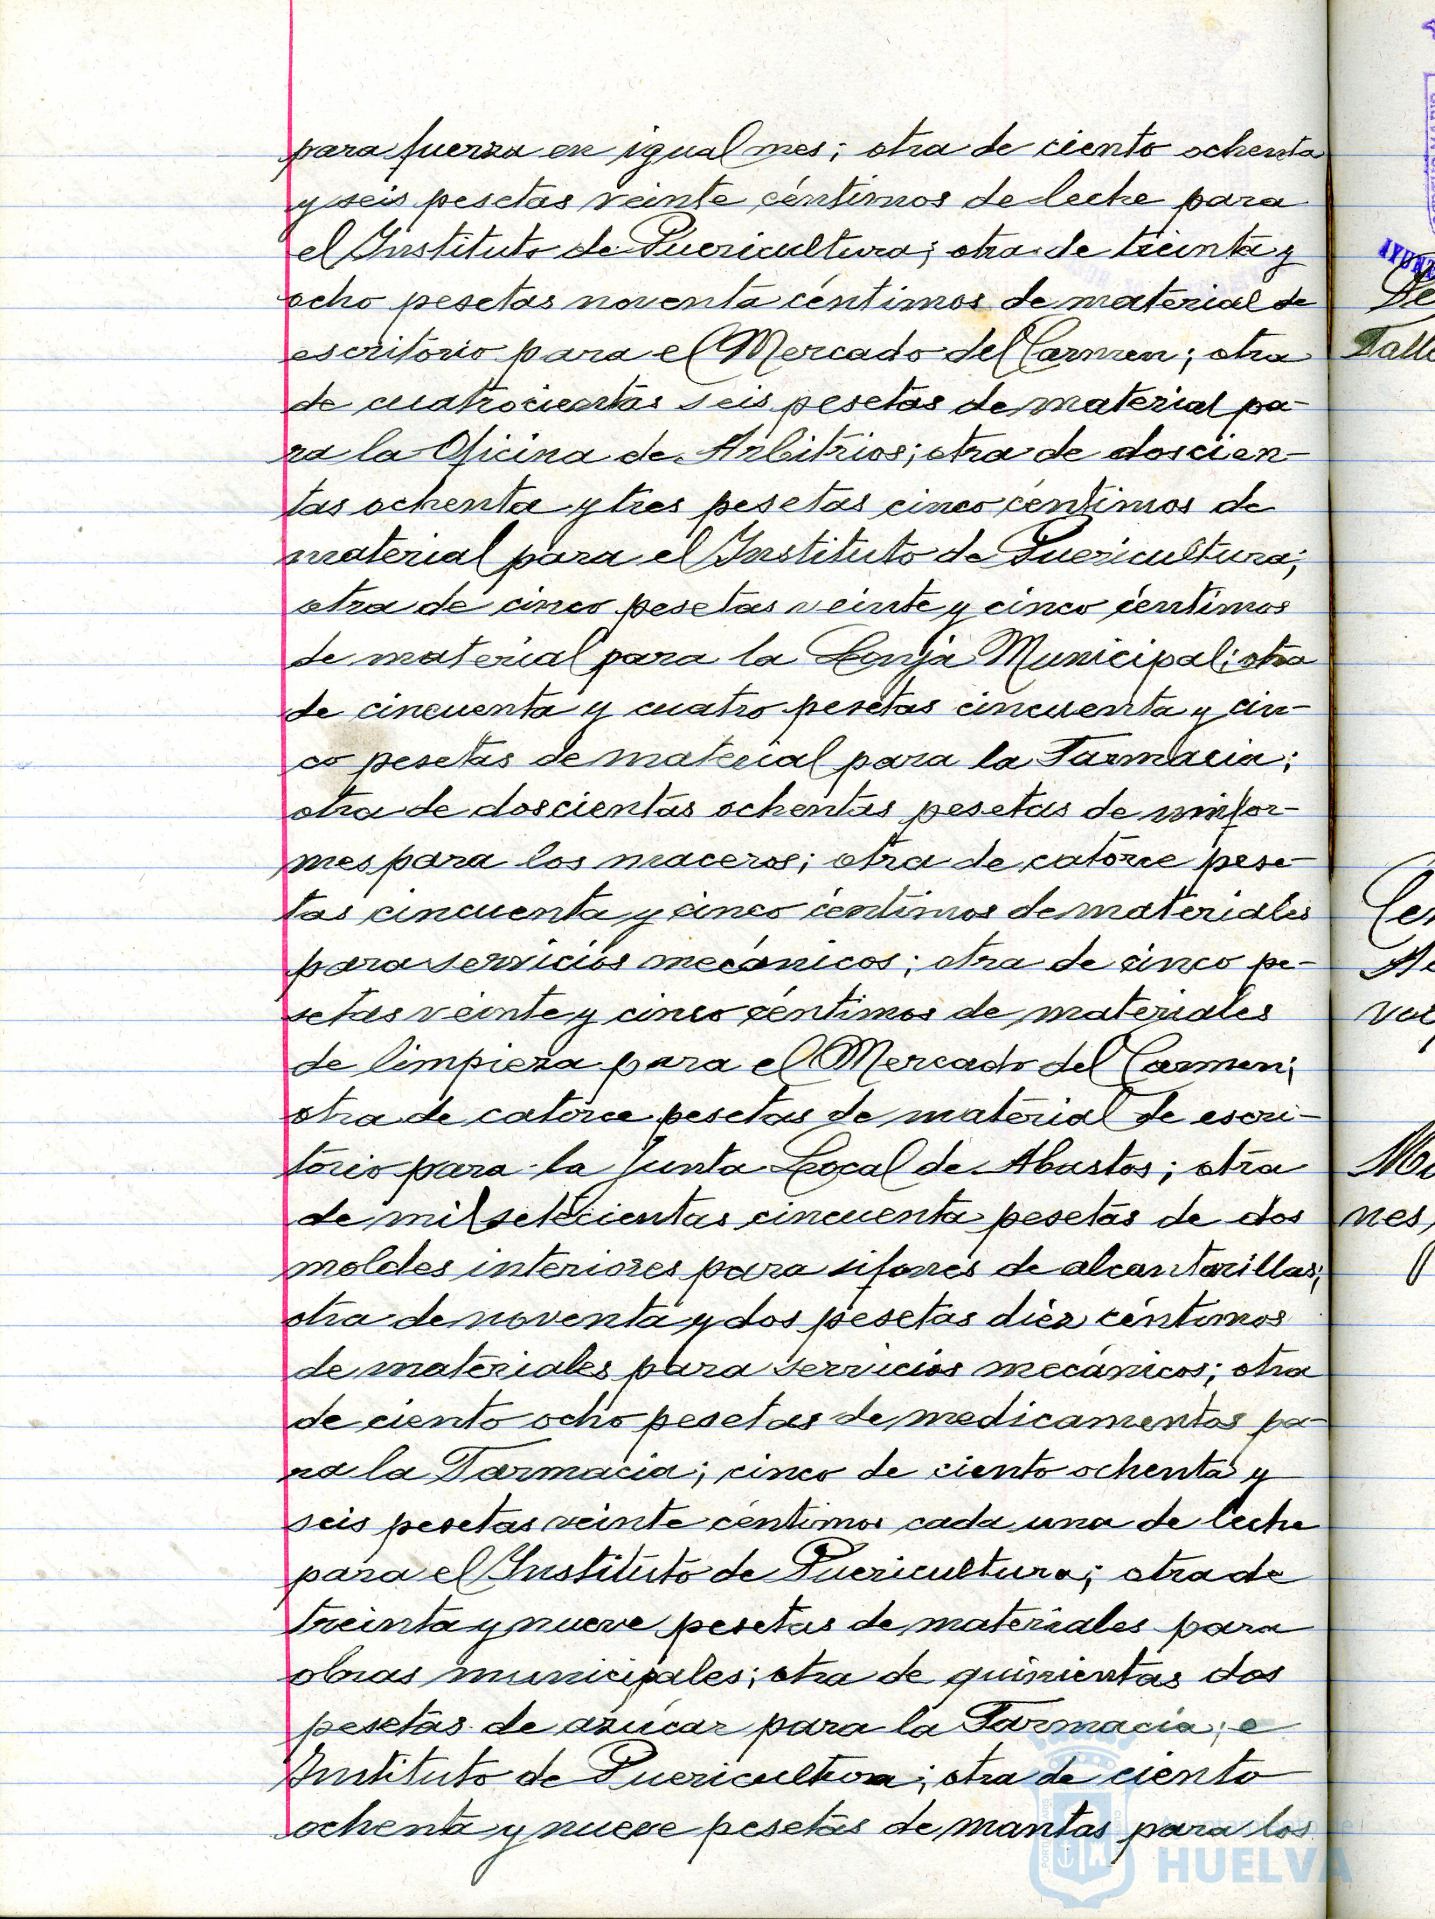 para fuerza en igual mes; otra de ciento ochenta
y seis pesetas veinte céntimos de leche para
el Instituto de Puericultura; otra de treinta y
ocho pesetas noventa céntimos de material de
escritorio para el Mercado del Carmen; otra
de cuatrocientas seis pesetas de material pa-
ra la Oficina de Arbitrios; otra de doscien-
tas ochenta y tres pesetas cinco céntimos de
material para el Instituto de Puericultura;
otra de cinco pesetas veinte y cinco céntimos
de material para la Lonja Municipal; otra
de cincuenta y cuatro pesetas cincuenta y cin-
co pesetas de material para la Farmacia;
otra de doscientas ochentas pesetas de unifor-
mes para los maceros; otra de catorce pese-
tas cincuenta y cinco céntimos de materiales
para servicios mecánicos; otra de cinco pe-
setas veinte y cinco céntimos de materiales
de limpieza para el Mercado del Carmen;
otra de catorce pesetas de material de escri-
torio para la Junta Local de Abastos; otra
de mil setecientas cincuenta pesetas de dos
moldes interiores para sifones de alcantarillas;
otra de noventa y dos pesetas diez céntimos
de materiales para servicios mecánicos; otra
de ciento ocho pesetas de medicamentos pa-
ra la Farmacia; cinco de ciento ochenta y
seis pesetas veinte céntimos cada una de leche
para el Instituto de Puericultura; otra de
treinta y nueve pesetas de materiales para
obras municipales; otra de quinientas dos
pesetas de azúcar para la Farmacia; e
Instituto de Puericultura; otra de ciento
ochenta y nueve pesetas de mantas para los
HUELVA